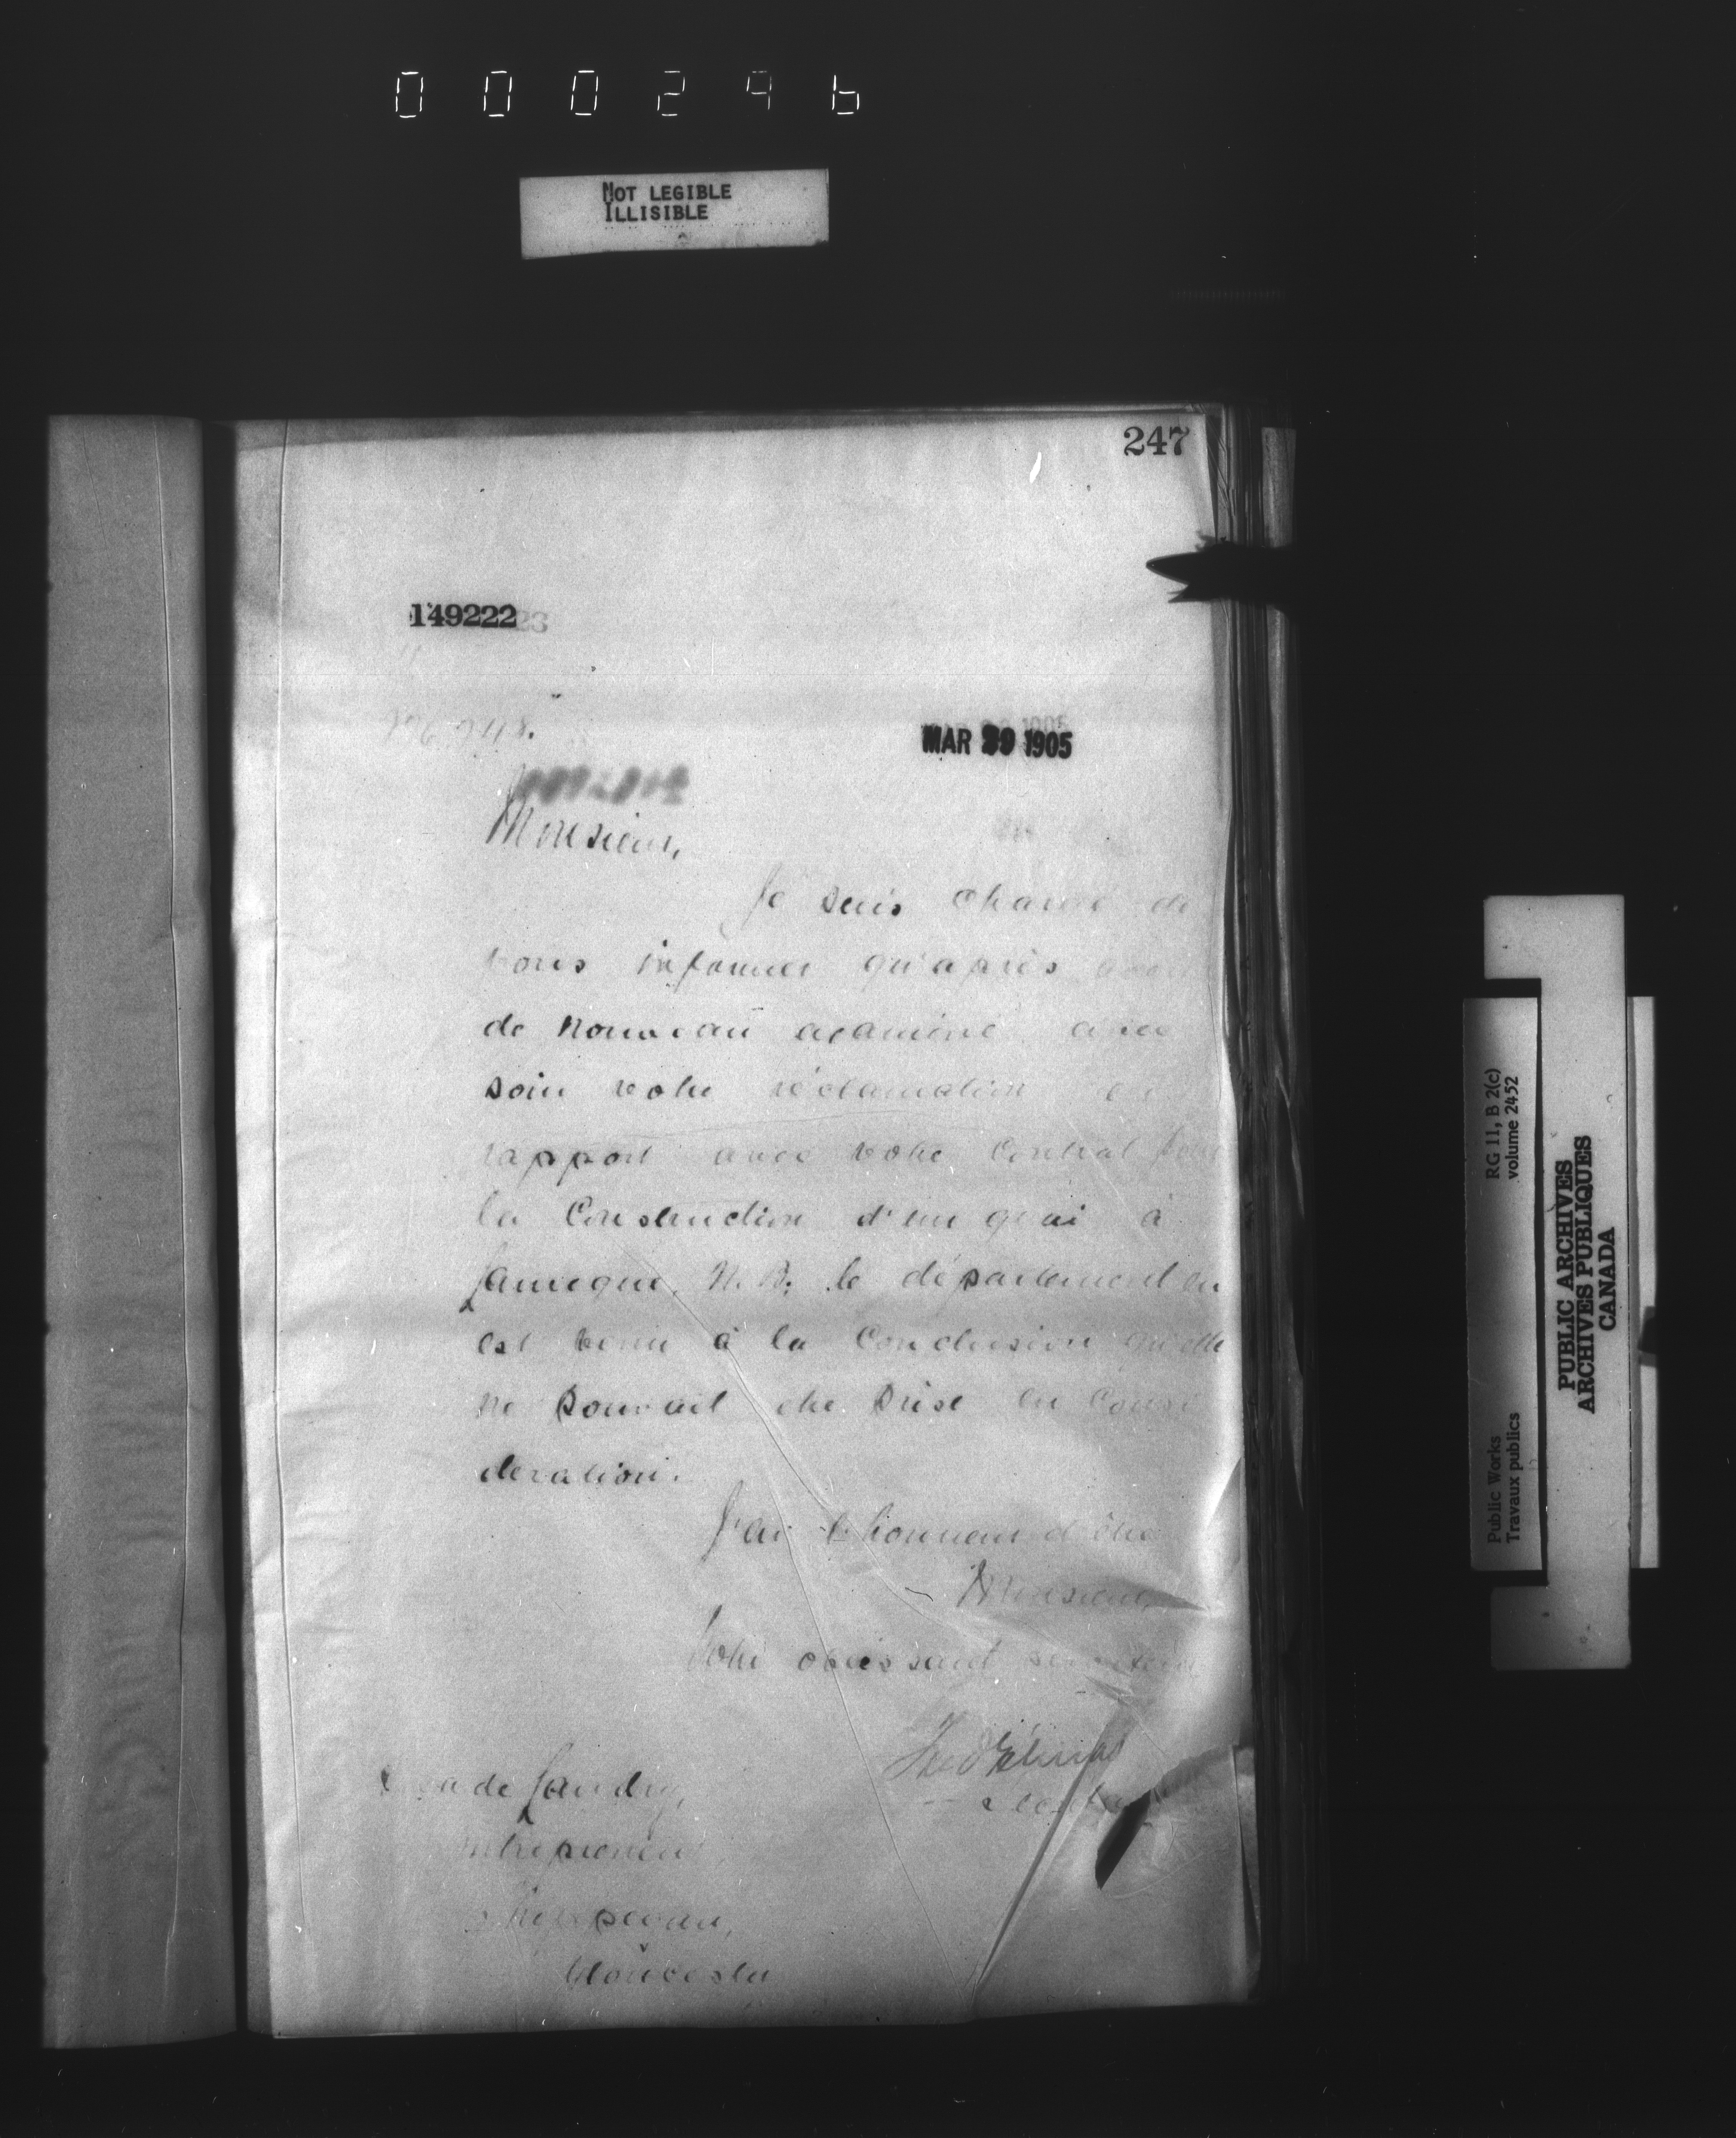 000296
NOT LEGIBLE
ILLISIBLE
247
149222
MAR 29 1905
Monsieur,
Je suis chargé de
vous informer qu'après avoir
de nouveau examiné avec
soin votre réclamation en
rapport avec votre contrat pour
la construction d'un quai à
Lameque, N.B., le département en
est venu à la conclusion qu'elle
ne pouvait être prise en consi
deration.
J'ai l'honneur d'être
Monsieur,
Votre obéissant serviteur
Fred Gélinas
Landry,
Entrepreneur
Shippegan,
Gloucester
Public Works
Travaux publics
RG 11, B 2(c)
volume 2452
PUBLIC ARCHIVES
ARCHIVES PUBLIQUES
CANADA